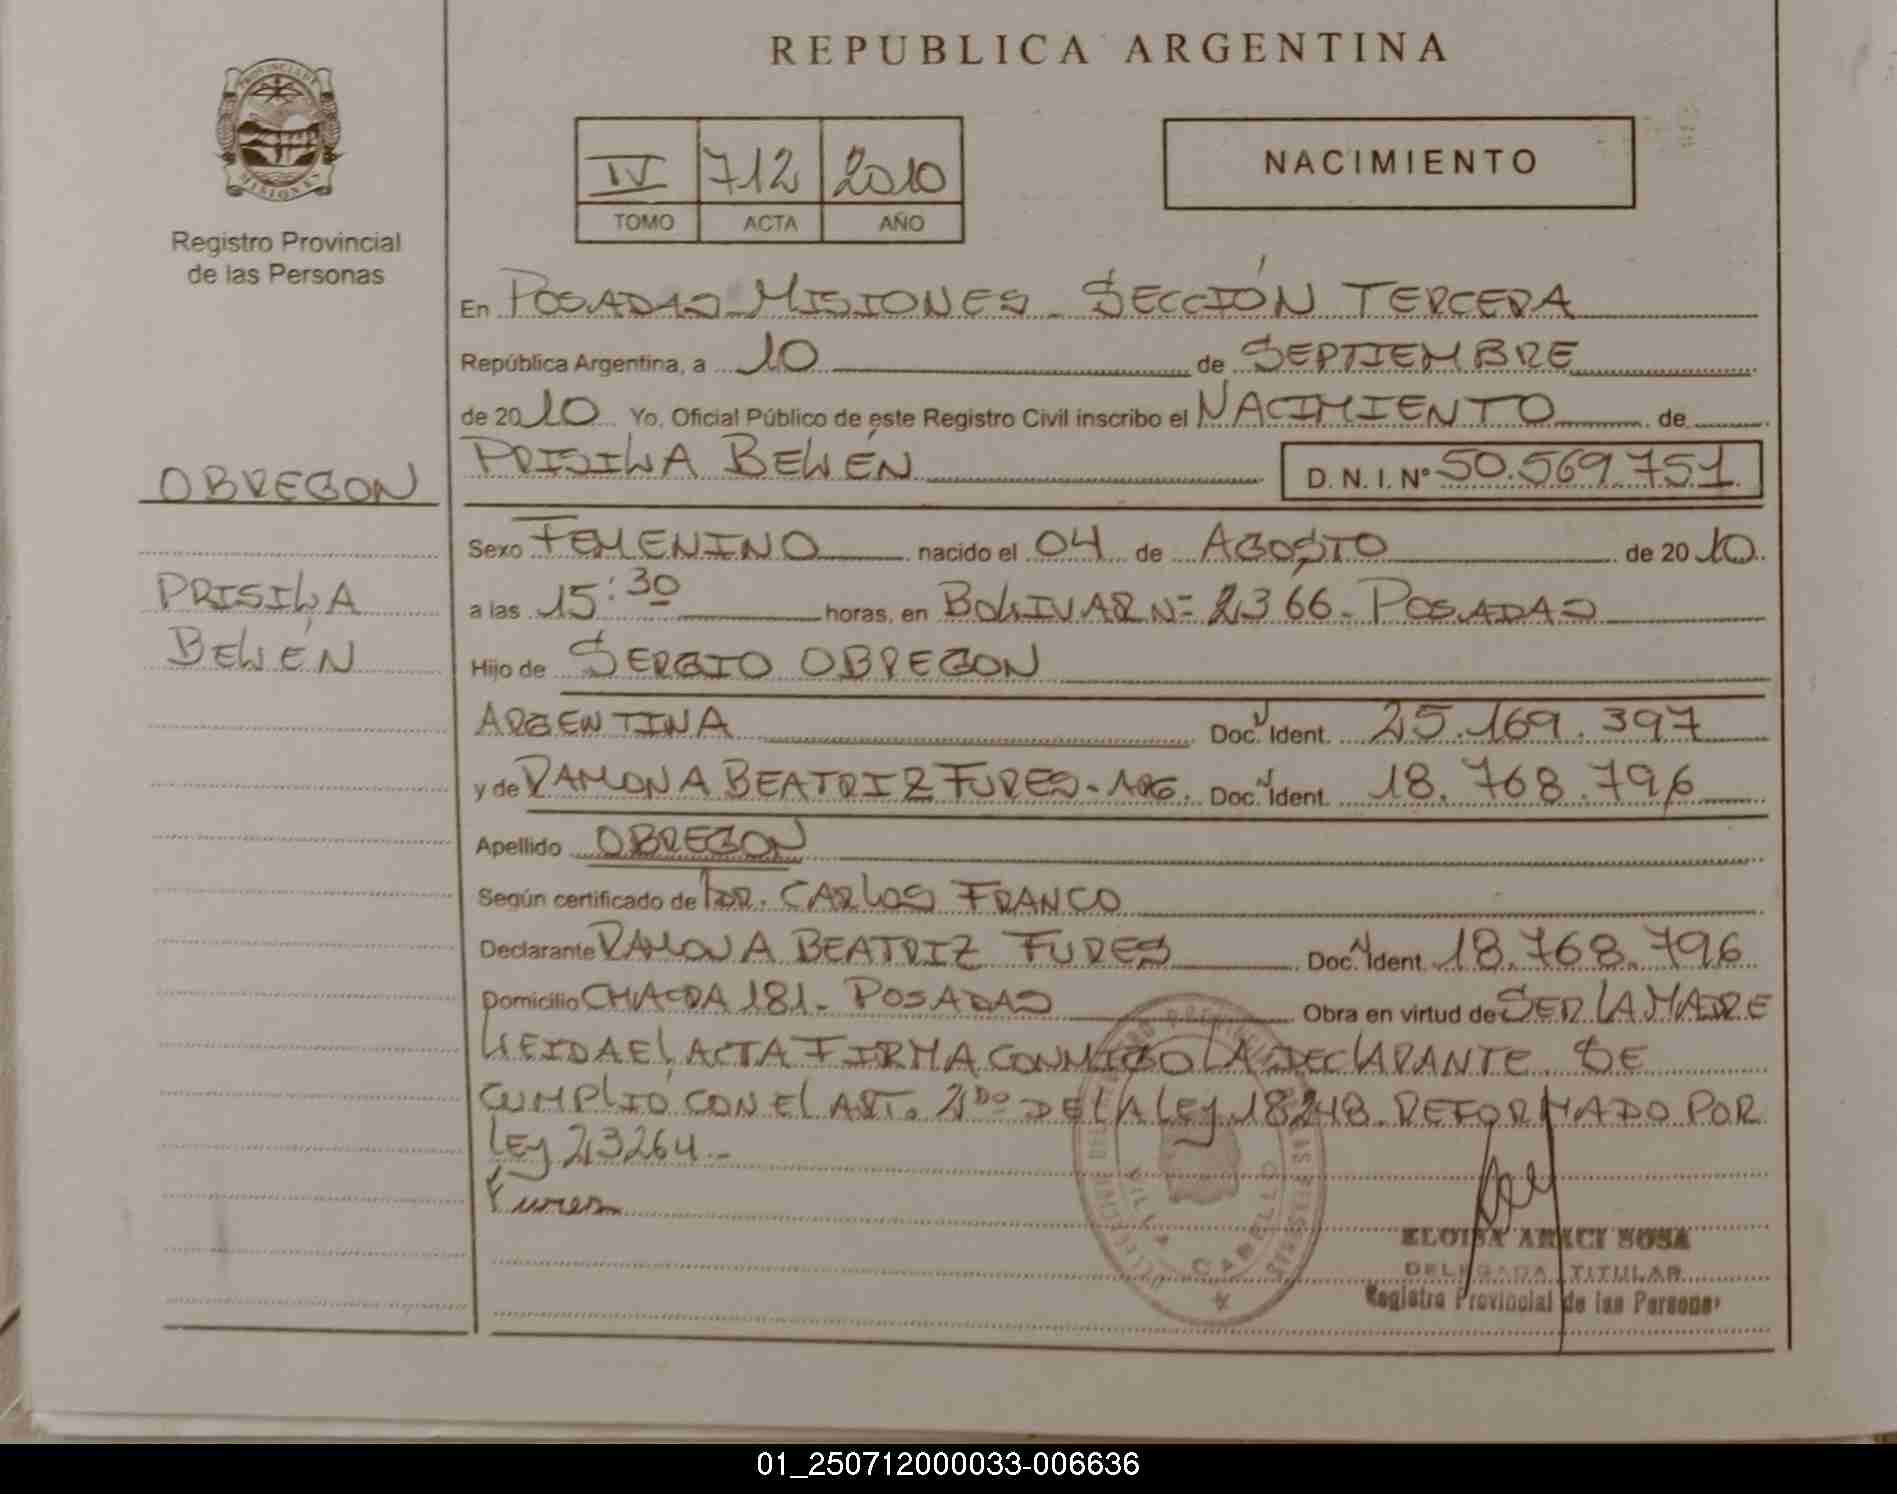 REPUBLICA ARGENTINA
PROVINCIA DE
MISIONES
Registro Provincial
de las Personas
IV 712 2010
TOMO ACTA AÑO
NACIMIENTO
En POSADAS MISIONES - SECCIÓN TERCERA
República Argentina, a 10 de SEPTIEMBRE
de 2010 Yo, Oficial Público de este Registro Civil inscribo el NACIMIENTO de
OBREGON
PRISILA BELÉN D. N. I. Nº 50.569.751
Sexo FEMENINO nacido el 04 de AGOSTO de 2010
PRISILA
BELÉN
a las 15:30 horas, en BOLIVAR Nº 2366 - POSADAS
Hijo de SERGIO OBREGON
ARGENTINA Doc. N Ident. 25.169.397
y de RAMONA BEATRIZ FURES - ARG. Doc. N Ident. 18.768.796
Apellido OBREGON
Según certificado de DR. CARLOS FRANCO
Declarante RAMONA BEATRIZ FURES Doc. N Ident. 18.768.796
Domicilio CHACRA 181 - POSADAS Obra en virtud de SER LA MADRE
LEIDA EL ACTA FIRMA CONMIGO LA DECLARANTE SE
CUMPLIÓ CON EL ART. 2DO DE LA LEY 18248 REFORMADO POR
LEY 23264.-
Fures
VILLA CABELLO
ELOISA ARACI SOSA
DELEGADA TITULAR
Registro Provincial de las Personas
01_250712000033-006636